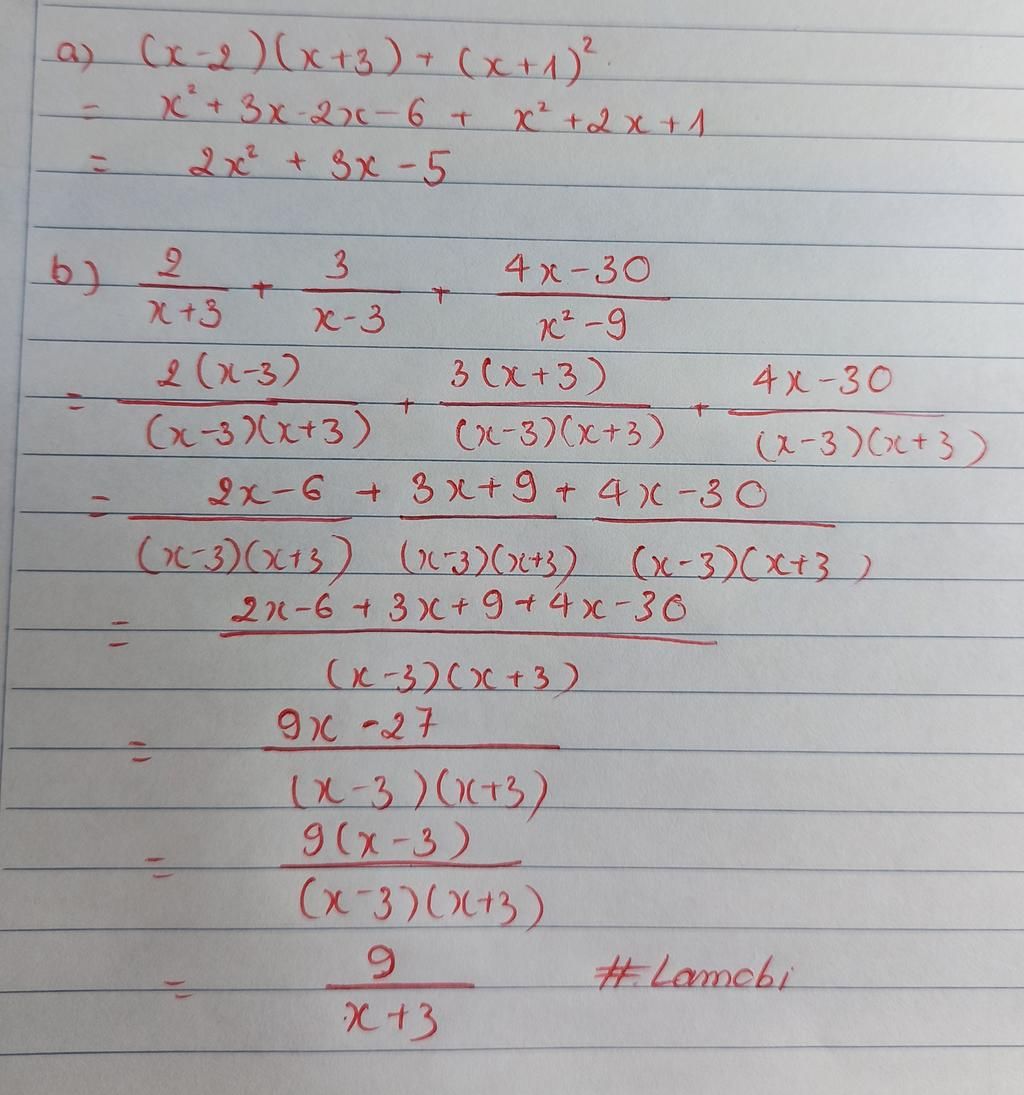 a) (x-2)(x+3) + (x+1)²
= x² + 3x - 2x - 6 + x² + 2x + 1
= 2x² + 3x - 5
b) 2/(x+3) + 3/(x-3) + (4x-30)/(x²-9)
= 2(x-3)/((x-3)(x+3)) + 3(x+3)/((x-3)(x+3)) + (4x-30)/((x-3)(x+3))
= (2x-6)/((x-3)(x+3)) + (3x+9)/((x-3)(x+3)) + (4x-30)/((x-3)(x+3))
= (2x-6+3x+9+4x-30)/((x-3)(x+3))
= (9x-27)/((x-3)(x+3))
= 9(x-3)/((x-3)(x+3))
= 9/(x+3) #Lamcbi